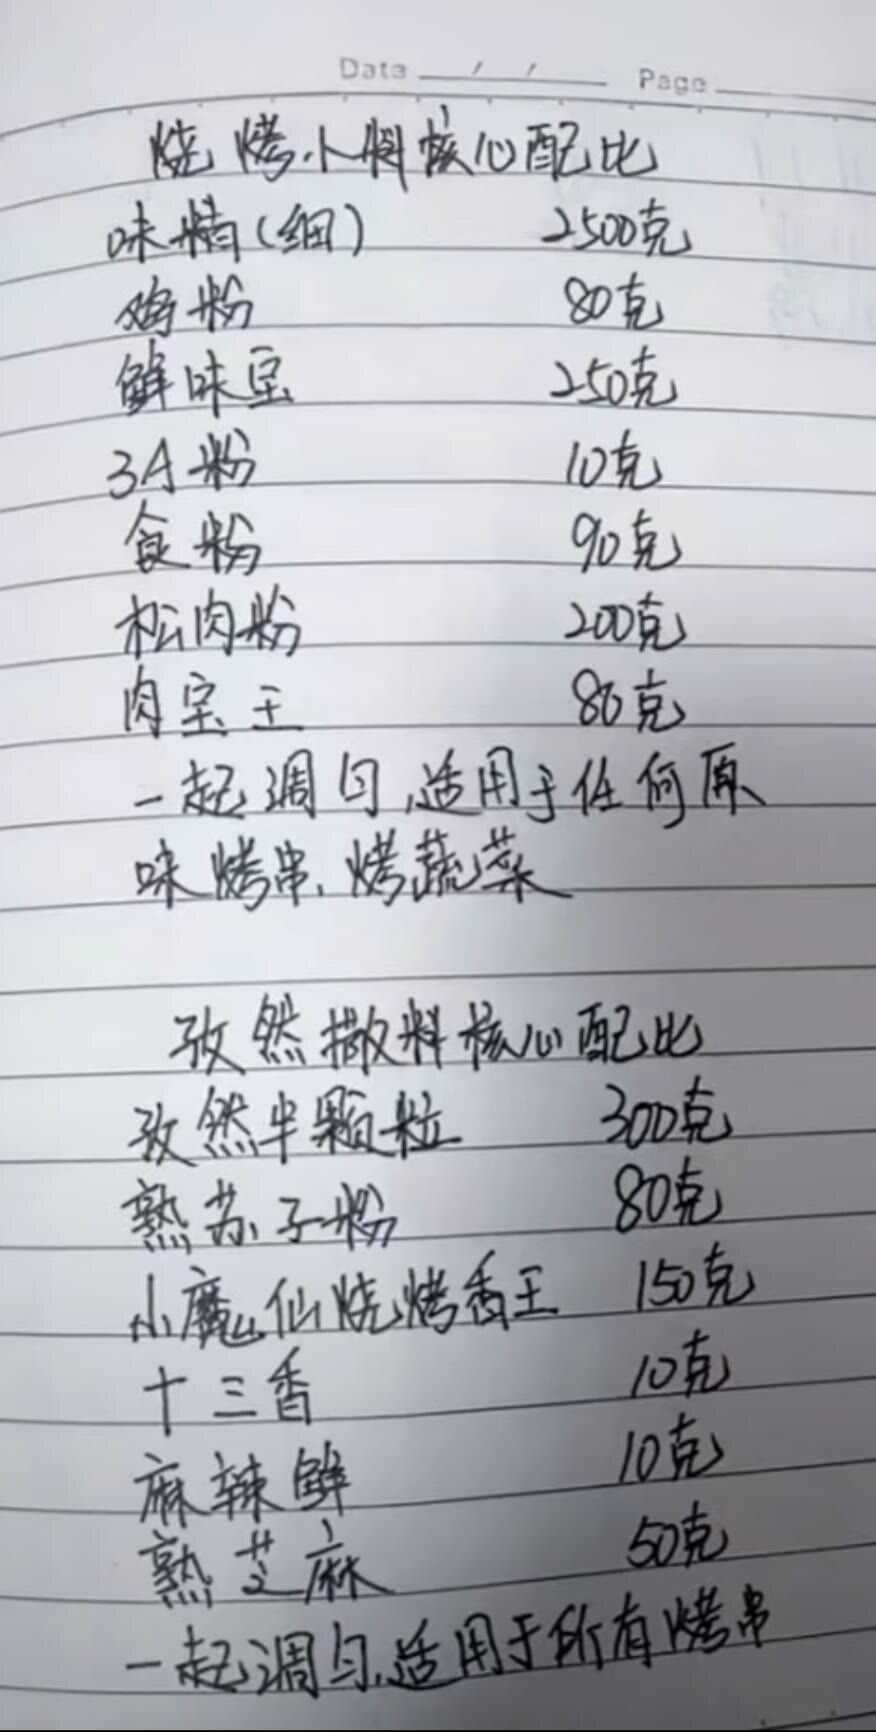 Date / / Page
烧烤小料核心配比
味精(细) 2500克
鸡粉 80克
鲜味宝 250克
3A粉 10克
食粉 90克
松肉粉 200克
肉宝王 80克
一起调匀,适用于任何原
味烤串、烤蔬菜
孜然撒料核心配比
孜然半颗粒 300克
熟苏子粉 80克
小魔仙烧烤香王 150克
十三香 10克
麻辣鲜 10克
熟芝麻 50克
一起调匀,适用于所有烤串